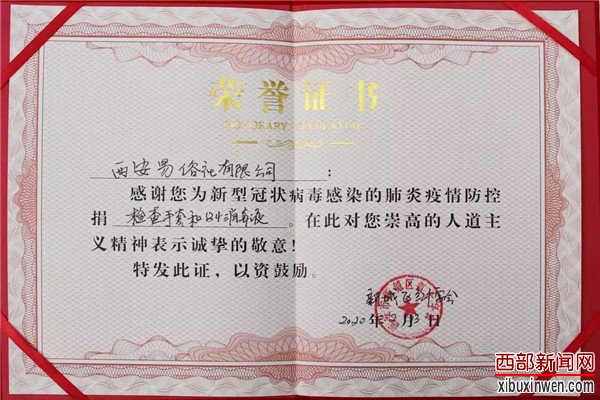 荣誉证书
HONORARY CREDENTIAL
西安易俗社有限公司：
感谢您为新型冠状病毒感染的肺炎疫情防控
捐 检查手套和84消毒液 。在此对您崇高的人道主
义精神表示诚挚的敬意！
特发此证，以资鼓励。
新城区红十字会
2020年2月3日
西部新闻网
xibuxinwen.com